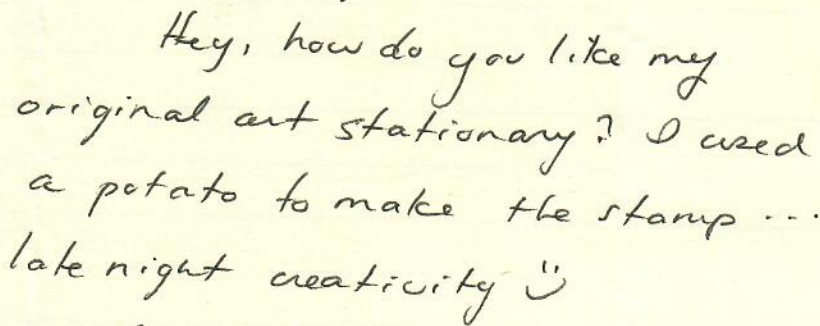 Hey, how do you like my
original art stationary? I used
a potato to make the stamp...
late night creativity ü